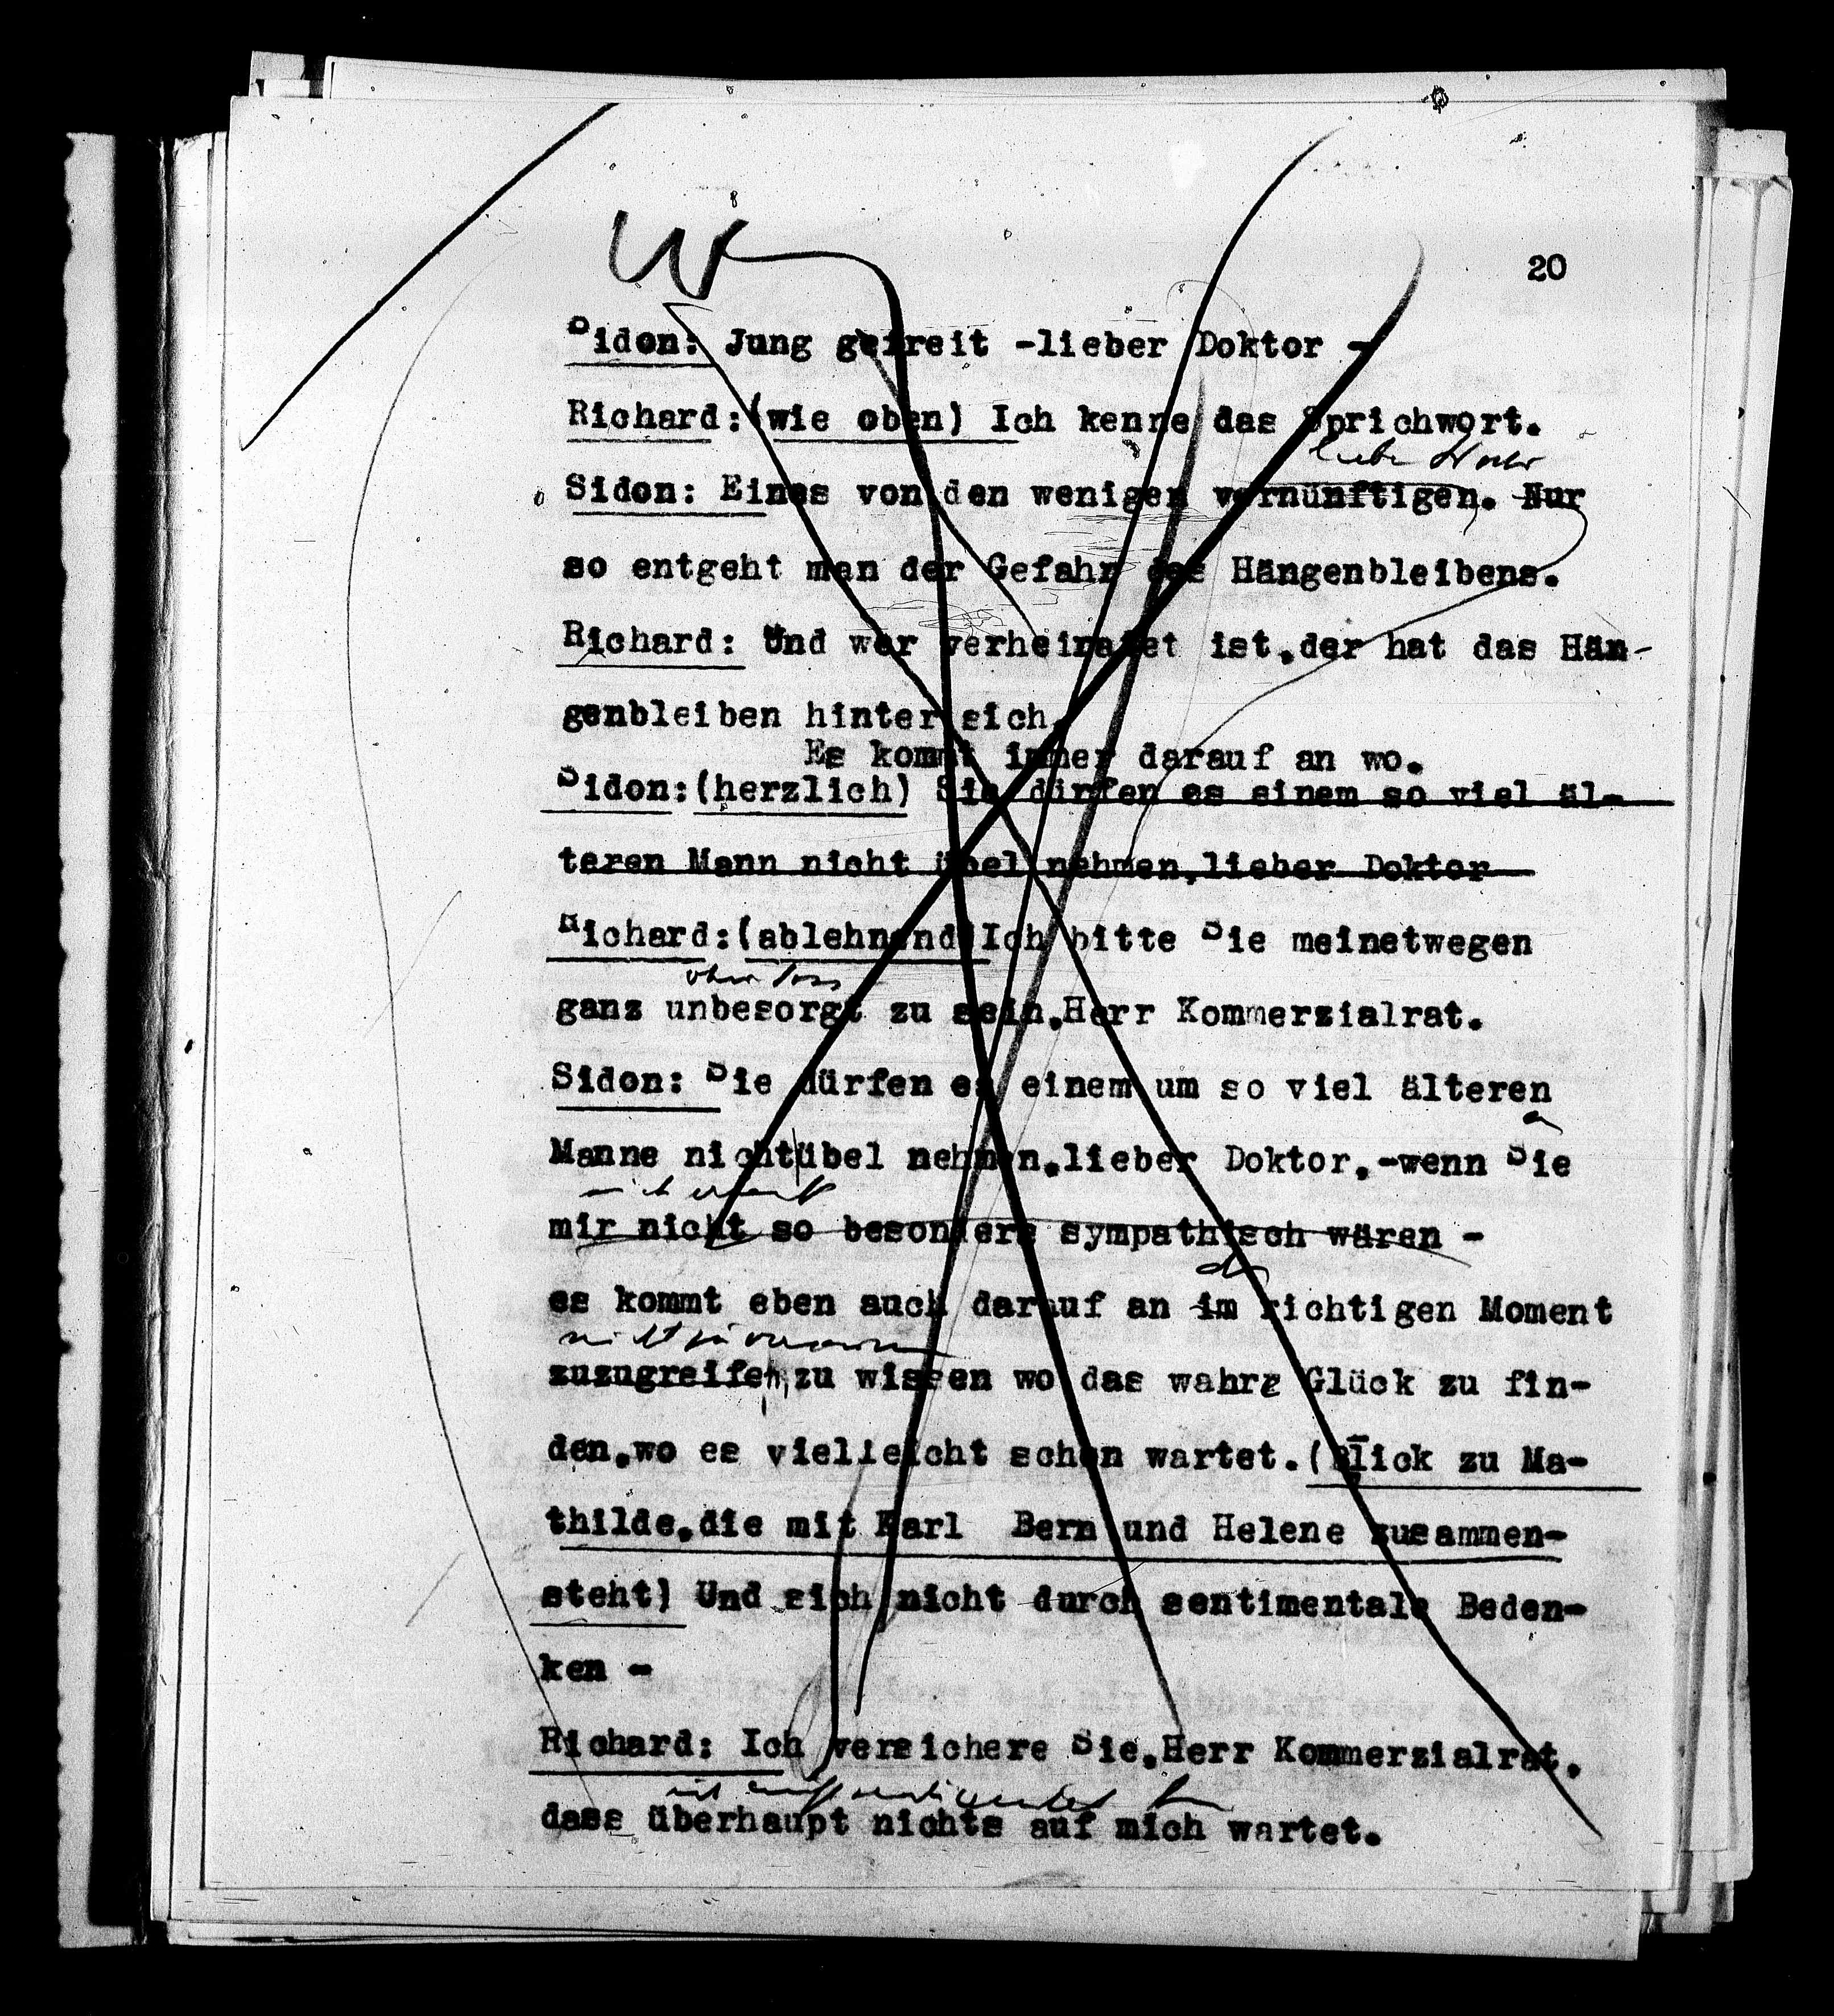 20
Sidon: Jung gefreit -lieber Doktor -
Richard:(wie oben) Ich kenne das Sprichwort.
Sidon: Eines von den wenigen vernünftigen. Nur
so entgeht man der Gefahr des Hängenbleibens.
Richard: Und wer verheiratet ist,der hat das Hän-
genbleiben hinter sich.
Es kommt immer darauf an wo.
Sidon:(herzlich) Sie dürfen es einem so viel äl-
teren Mann nicht übel nehmen,lieber Doktor
Richard:(ablehnend)Ich bitte Sie meinetwegen
ganz unbesorgt zu sein,Herr Kommerzialrat.
Sidon: Sie dürfen es einem um so viel älteren
Manne nicht übel nehmen,lieber Doktor,-wenn Sie
mir nicht so besonders sympathisch wären -
es kommt eben auch darauf an im richtigen Moment
zuzugreifen,zu wissen wo das wahre Glück zu fin-
den,wo es vielleicht schon wartet.(Blick zu Ma-
thilde,die mit Karl Bern und Helene zusammen-
steht) Und sich nicht durch sentimentale Beden-
ken -
Richard: Ich versichere Sie,Herr Kommerzialrat,
dass überhaupt nichts auf mich wartet.